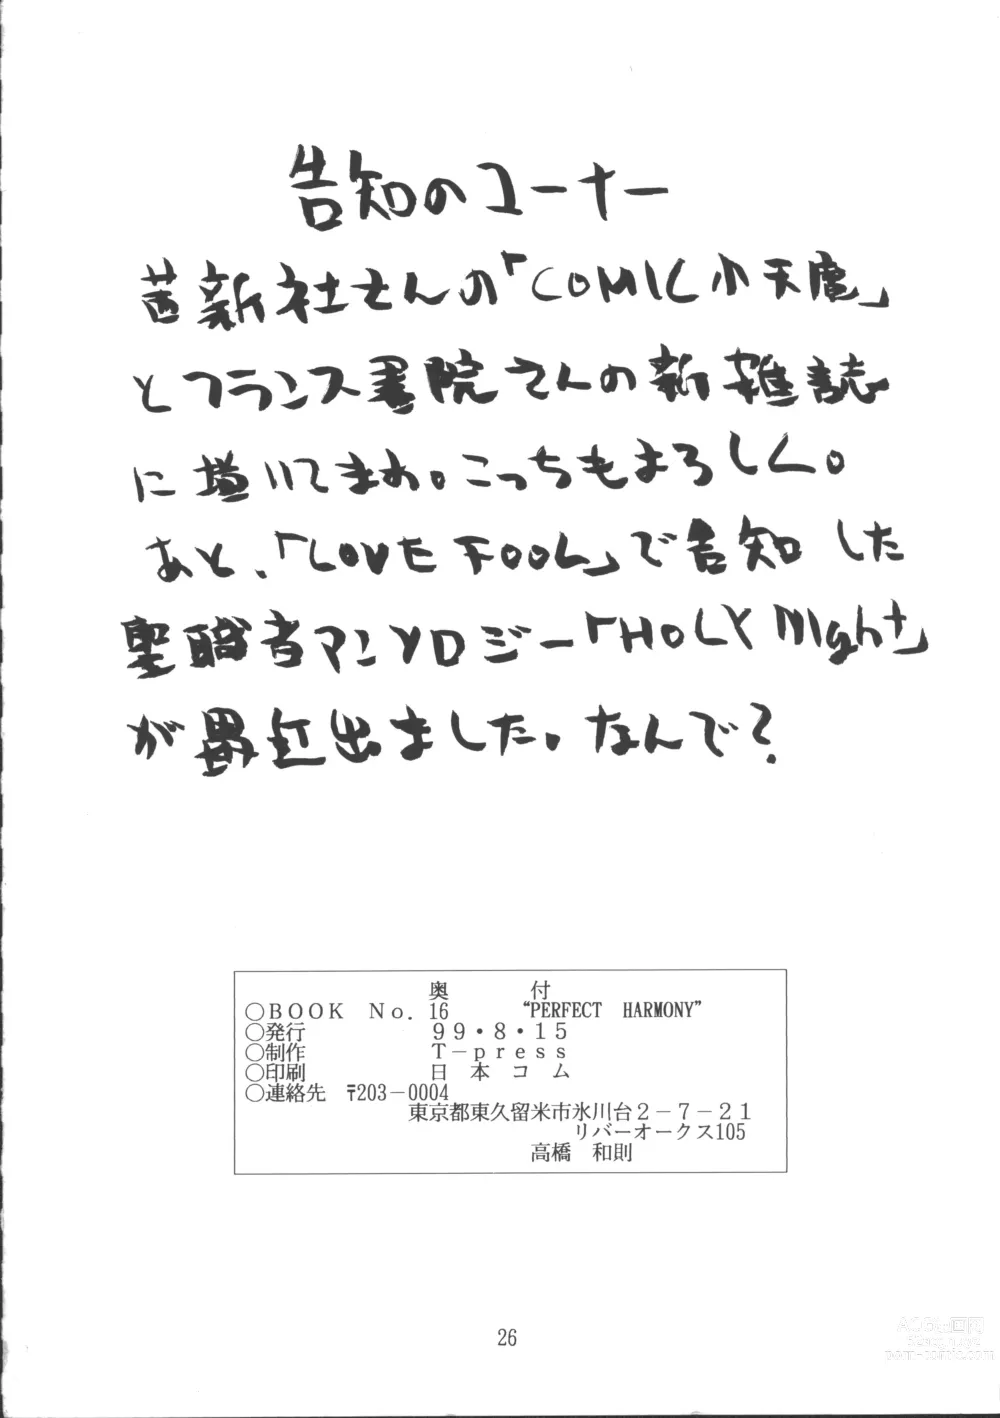 告知のコーナー
茜新社さんの「COMIC小天使」
とフランス書院さんの新雑誌
に描いてまあ。こっちもよろしく。
あと、「LOVE FOOL」で告知した
聖職者アンソロジー「HOLY NIght」
が最近出ました。なんで?
奥付
○BOOK No.16 “PERFECT HARMONY”
○発行 99・8・15
○制作 T-press
○印刷 日本コム
○連絡先 〒203-0004
東京都東久留米市氷川台2-7-21
リバーオークス105
高橋 和則
26